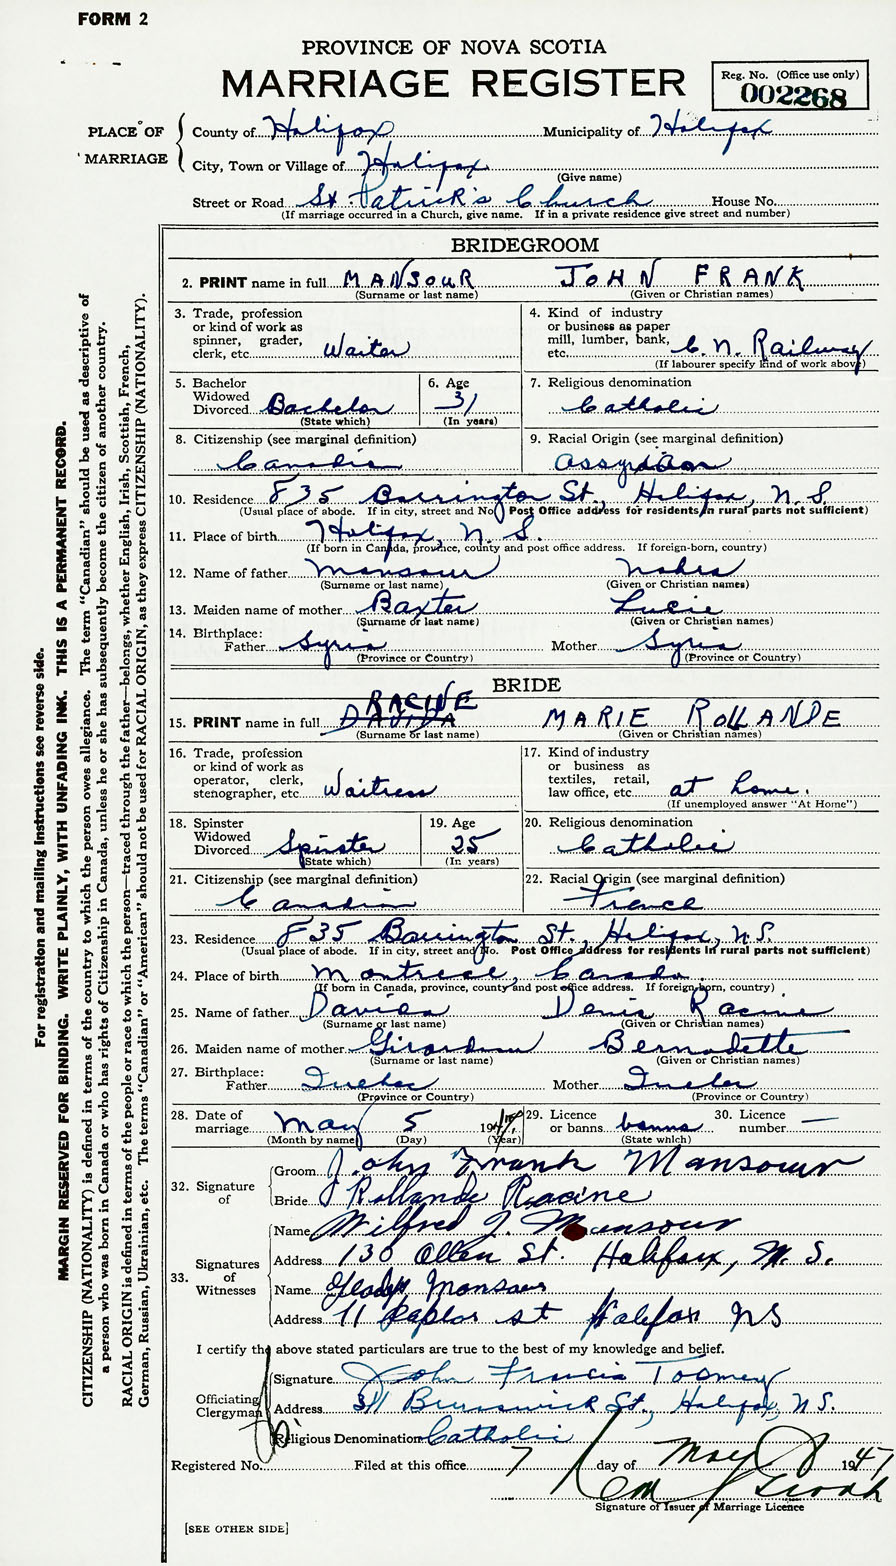 FORM 2
PROVINCE OF NOVA SCOTIA
MARRIAGE REGISTER
Reg. No. (Office use only)
002268
PLACE OF MARRIAGE
County of Halifax Municipality of Halifax
City, Town or Village of Halifax
(Give name)
Street or Road St. Patrick's Church House No.
(If marriage occurred in a Church, give name. If in a private residence give street and number)
BRIDEGROOM
2. PRINT name in full MANSOUR JOHN FRANK
(Surname or last name) (Given or Christian names)
3. Trade, profession
or kind of work as
spinner, grader,
clerk, etc. Waiter
4. Kind of industry
or business as paper
mill, lumber, bank,
etc. C. N. Railway
(If labourer specify kind of work above)
5. Bachelor
Widowed
Divorced Bachelor
(State which)
6. Age
31
(In years)
7. Religious denomination
Catholic
8. Citizenship (see marginal definition)
Canadian
9. Racial Origin (see marginal definition)
Assyrian
10. Residence 835 Barrington St., Halifax, N.S.
(Usual place of abode. If in city, street and No. Post Office address for residents in rural parts not sufficient)
11. Place of birth Halifax, N. S.
(If born in Canada, province, county and post office address. If foreign-born, country)
12. Name of father Mansour
(Surname or last name) (Given or Christian names)
13. Maiden name of mother Baxter Lucie
(Surname or last name) (Given or Christian names)
14. Birthplace:
Father Syria Mother Syria
(Province or Country) (Province or Country)
BRIDE
RACINE
15. PRINT name in full DAVIDA MARIE ROLLANDE
(Surname or last name) (Given or Christian names)
16. Trade, profession
or kind of work as
operator, clerk,
stenographer, etc. Waitress
17. Kind of industry
or business as
textiles, retail,
law office, etc. at home.
(If unemployed answer "At Home")
18. Spinster
Widowed
Divorced Spinster
(State which)
19. Age
25
(In years)
20. Religious denomination
Catholic
21. Citizenship (see marginal definition)
Canadian
22. Racial Origin (see marginal definition)
French
23. Residence 835 Barrington St., Halifax, N.S.
(Usual place of abode. If in city, street and No. Post Office address for residents in rural parts not sufficient)
24. Place of birth Montreal, Canada.
(If born in Canada, province, county and post office address. If foreign-born, country)
25. Name of father Denis Racine
(Surname or last name) (Given or Christian names)
26. Maiden name of mother Bernadette
(Surname or last name) (Given or Christian names)
27. Birthplace:
Father Quebec Mother Quebec
(Province or Country) (Province or Country)
28. Date of
marriage May 5 1947
(Month by name) (Day) (Year)
29. Licence
or banns banns
(State which)
30. Licence
number —
32. Signature of
Groom John Frank Mansour
Bride Rollande Racine
33. Signatures of Witnesses
Name Wilfred J. Mansour
Address 130 Allen St. Halifax, N. S.
Name Gladys Mansour
Address 11 st Halifax NS
I certify the above stated particulars are true to the best of my knowledge and belief.
Officiating Clergyman
Signature John Francis Toomey
Address 311 Brunswick St., Halifax, N.S.
Religious Denomination Catholic
Registered No. Filed at this office 7 day of May 1947
Signature of Issuer of Marriage Licence
[SEE OTHER SIDE]
For registration and mailing instructions see reverse side.
MARGIN RESERVED FOR BINDING. WRITE PLAINLY, WITH UNFADING INK. THIS IS A PERMANENT RECORD.
CITIZENSHIP (NATIONALITY) is defined in terms of the country to which the person owes allegiance. The term "Canadian" should be used as descriptive of
a person who was born in Canada or who has rights of Citizenship in Canada, unless he or she has subsequently become the citizen of another country.
RACIAL ORIGIN is defined in terms of the people or race to which the person—traced through the father—belongs, whether English, Irish, Scottish, French,
German, Russian, Ukrainian, etc. The terms "Canadian" or "American" should not be used for RACIAL ORIGIN, as they express CITIZENSHIP (NATIONALITY).